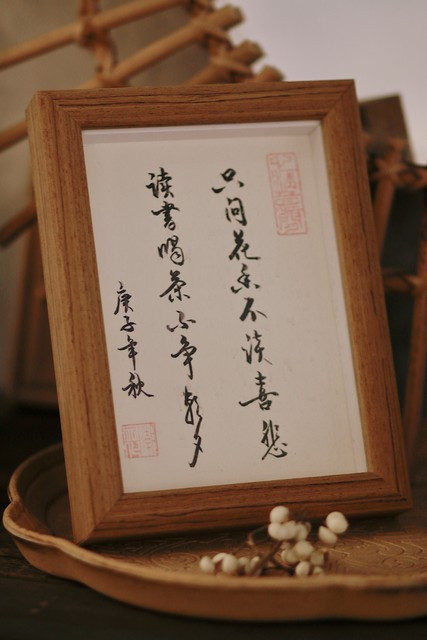 只问花香不谈喜悲
读书喝茶不争朝夕
庚子年秋